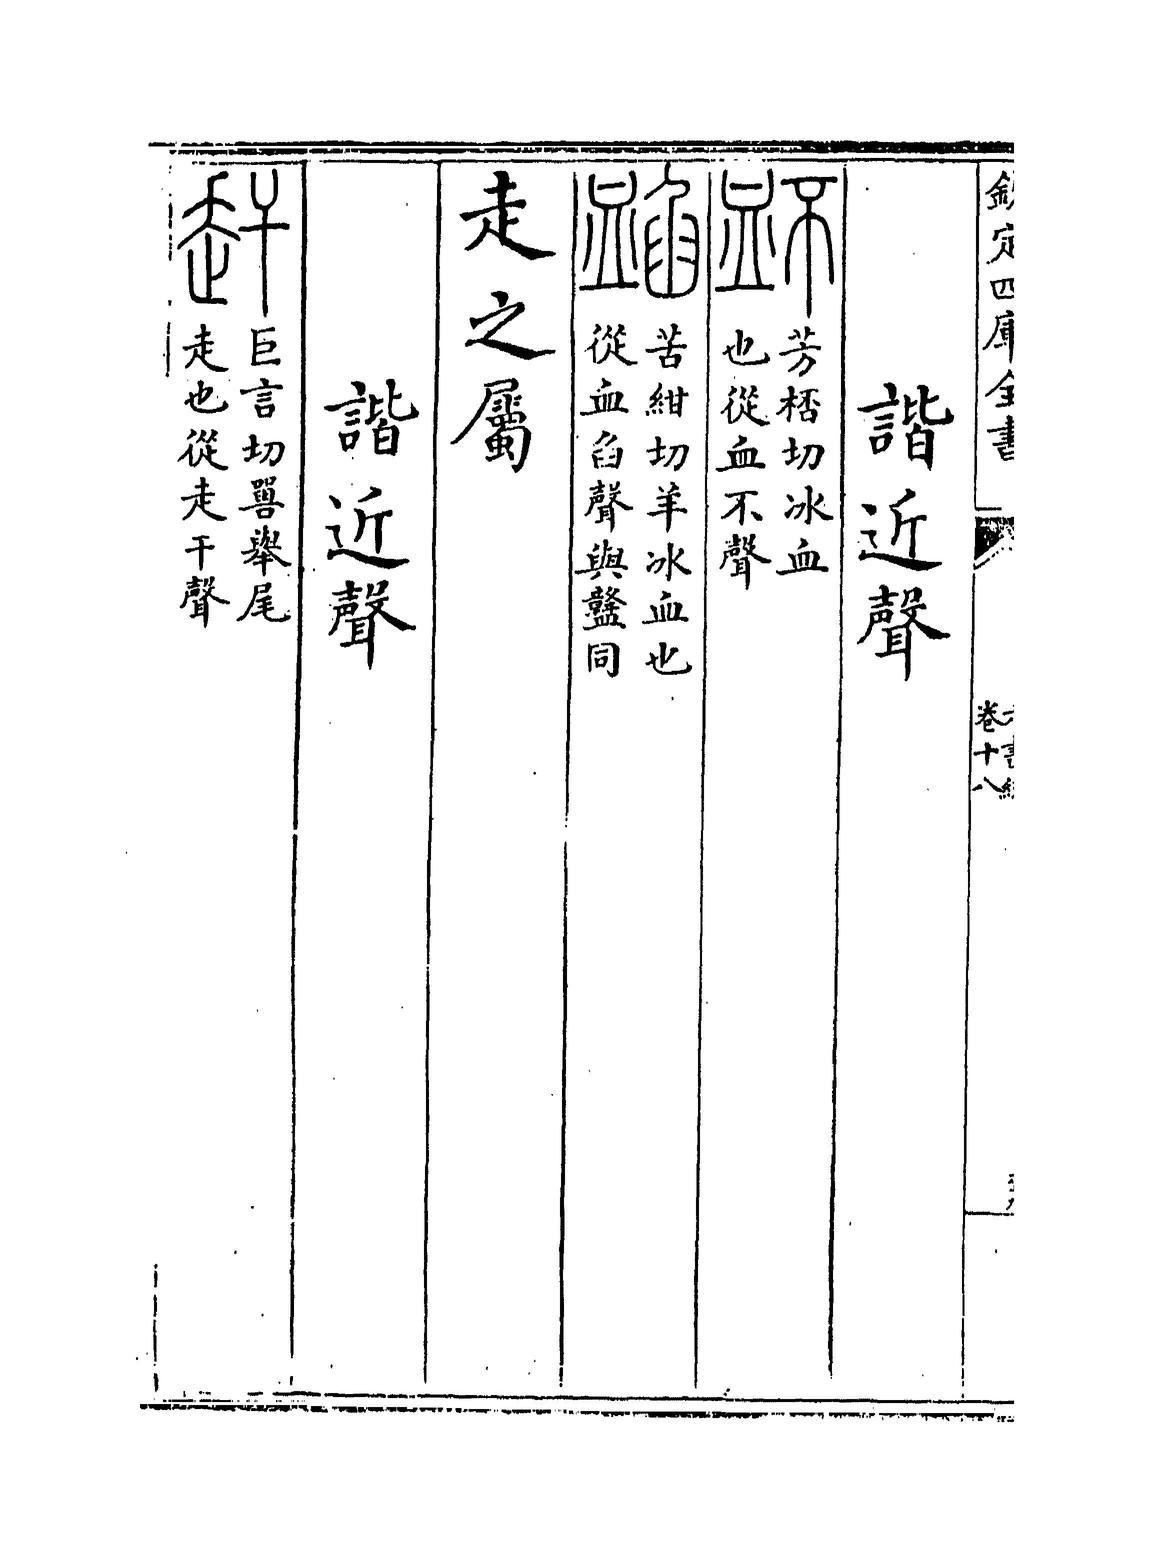 欽定四庫全書
卷十八
諧近聲
衃
芳桮切冰血
也從血不聲
苦紺切羊冰血也
從血臽聲與同
走之屬
諧近聲
赶
巨言切嘼舉尾
走也從走干聲